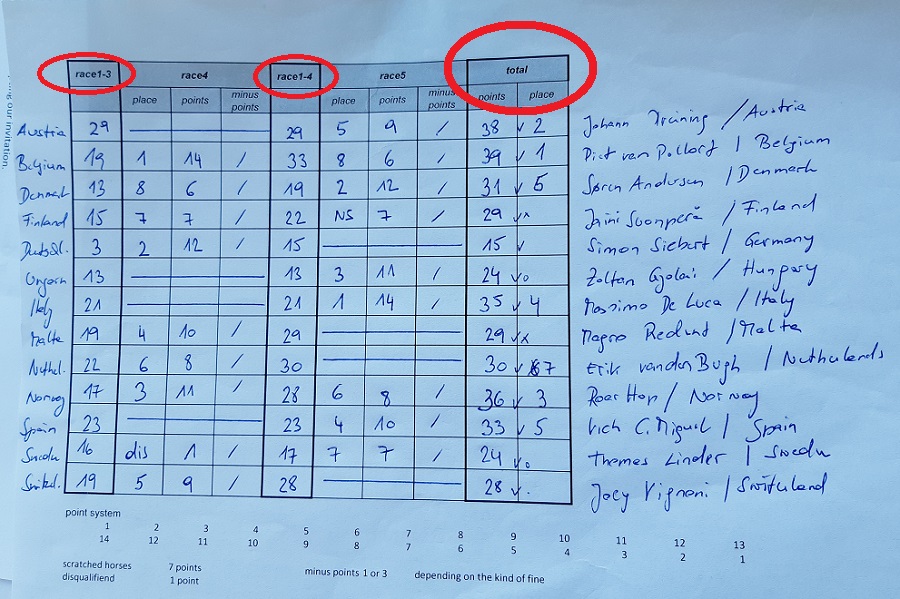 ing our invitation.
race1-3 race4 race1-4 race5 total
place points minus points place points minus points points place
Austria 29 29 5 9 / 38 v 2 Johann / Austria
Belgium 19 1 14 / 33 8 6 / 39 v 1 Piet van Pollart / Belgium
Denmark 13 8 6 / 19 2 12 / 31 v 6 Søren Andersen / Denmark
Finland 15 7 7 / 22 NS 7 / 29 v x / Finland
3 2 12 / 15 15 v Simon Siebert / Germany
Ungarn 13 13 3 11 / 24 v o Zoltan / Hungary
Italy 21 21 1 14 / 35 v 4 Massimo De Luca / Italy
Malta 19 4 10 / 29 29 v x / Malta
Nethel. 22 6 8 / 30 30 v 7 Erik van den / Netherlands
Norway 17 3 11 / 28 6 8 / 36 v 3 / Norway
Spain 23 23 4 10 / 33 v 5 C. Miguel / Spain
16 dis 1 / 17 7 7 / 24 v o Thomas Linder / Sweden
19 5 9 / 28 28 v . Joey / Switzerland
point system
1 2 3 4 5 6 7 8 9 10 11 12 13
14 12 11 10 9 8 7 6 5 4 3 2 1
scratched horses 7 points minus points 1 or 3 depending on the kind of fine
disqualifiend 1 point